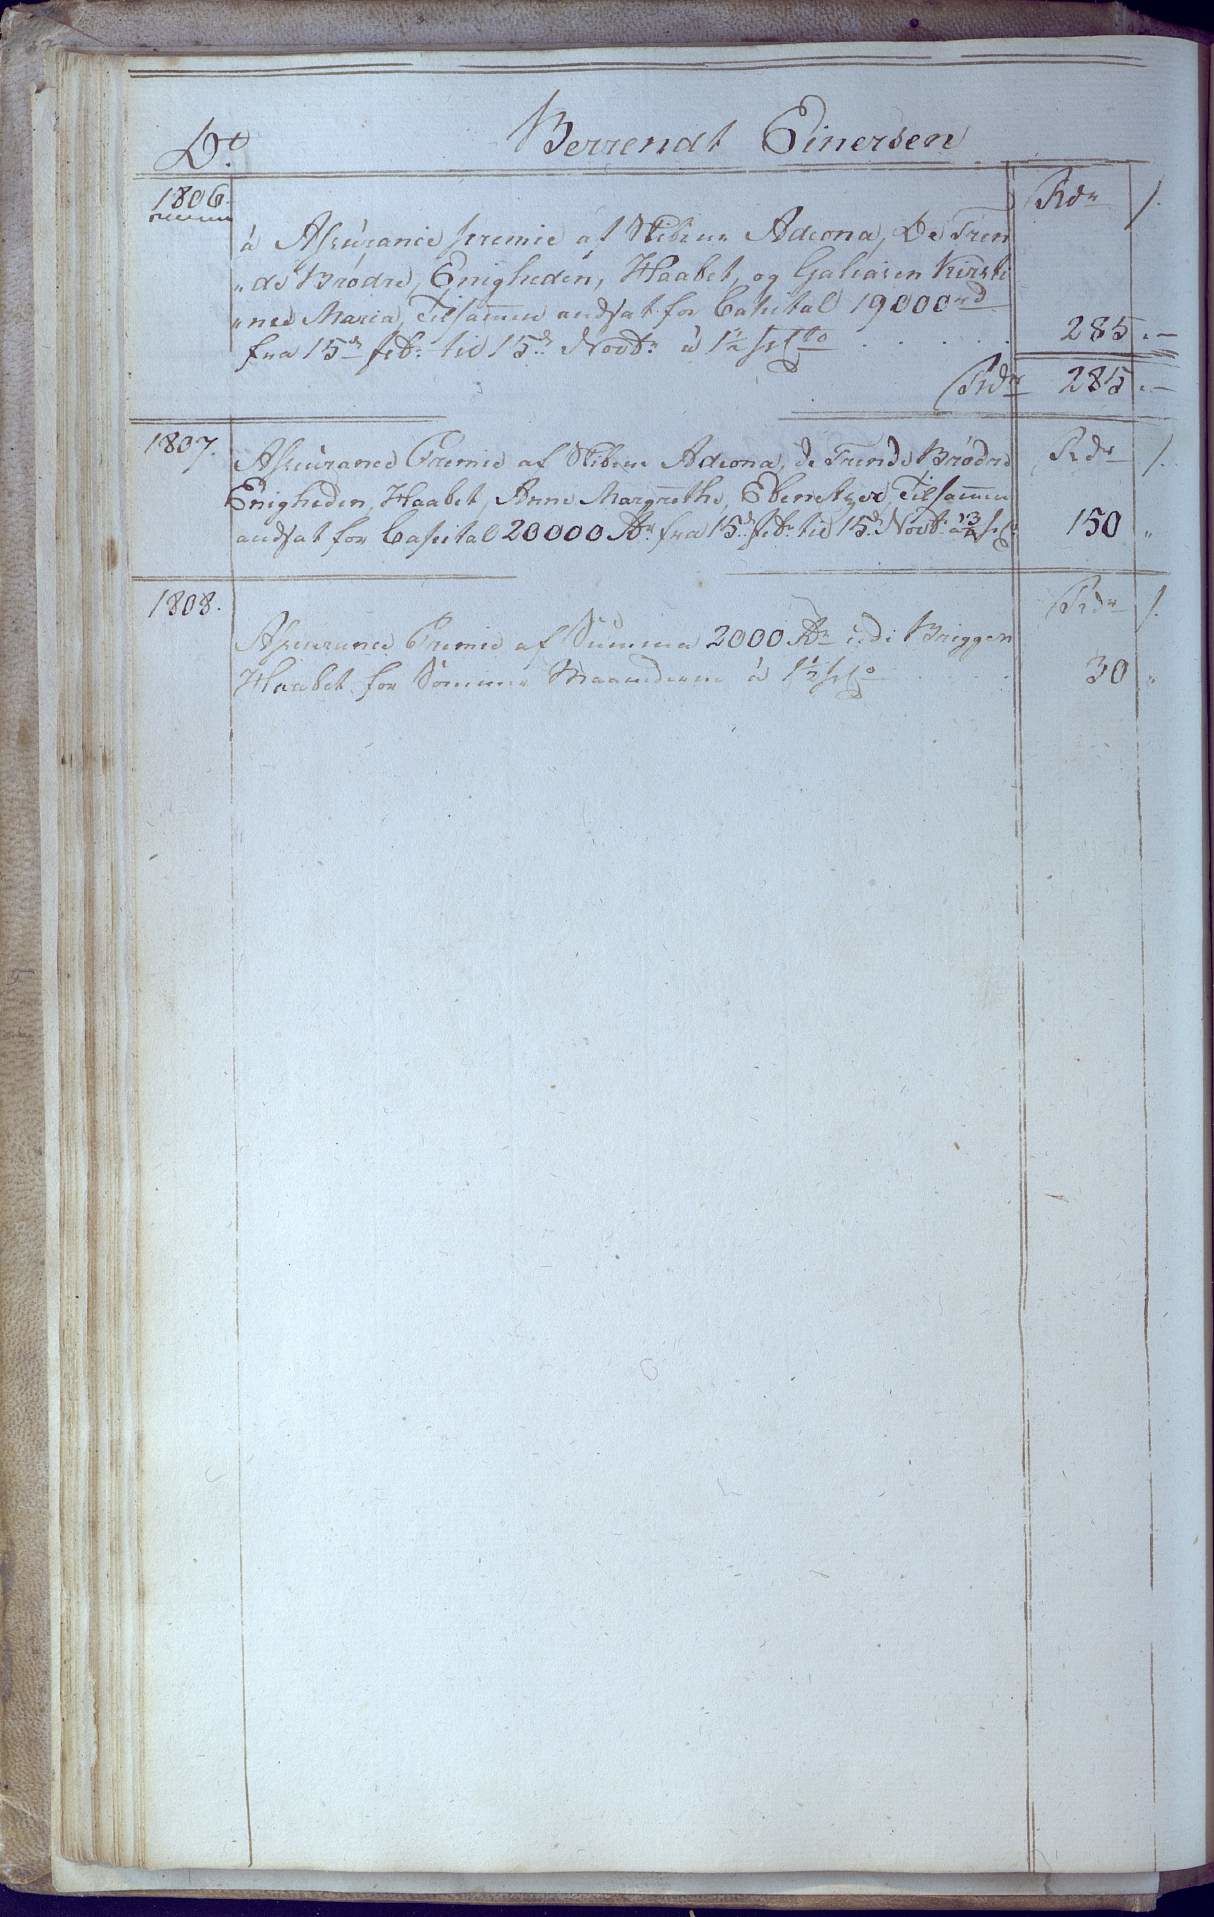 Do. Berrendt Einersen
1806. Rdr /.
à Assurance premie af Skibene Adeona, De Tren
"de Brødre, Enigheden, Haabet, og Galiasen Kirsti
"nee Maria, Tilsam̅en andsat for Capital 19000 rd
fra 15de feb: til 15de Novbr à 1½ pCto . . . . . 285 . —
Rdr 285 . —
1807. Rdr /.
Asseurance Premie af Skibene Adeona, de Trende Brødre
Enigheden, Haabet, Anne Margrethe, Ebenetzer, Tilsam̅en
andsat for Capital 20000 Rdr fra 15de feb: til 15de Novbr à ¾ pCt 150 "
1808. Rdr /.
Asseurance Premie af Summa 2000 Rdr i de Briggen
Haabet for Sommer Maanderne à 1½ pCto . . . . 30 "